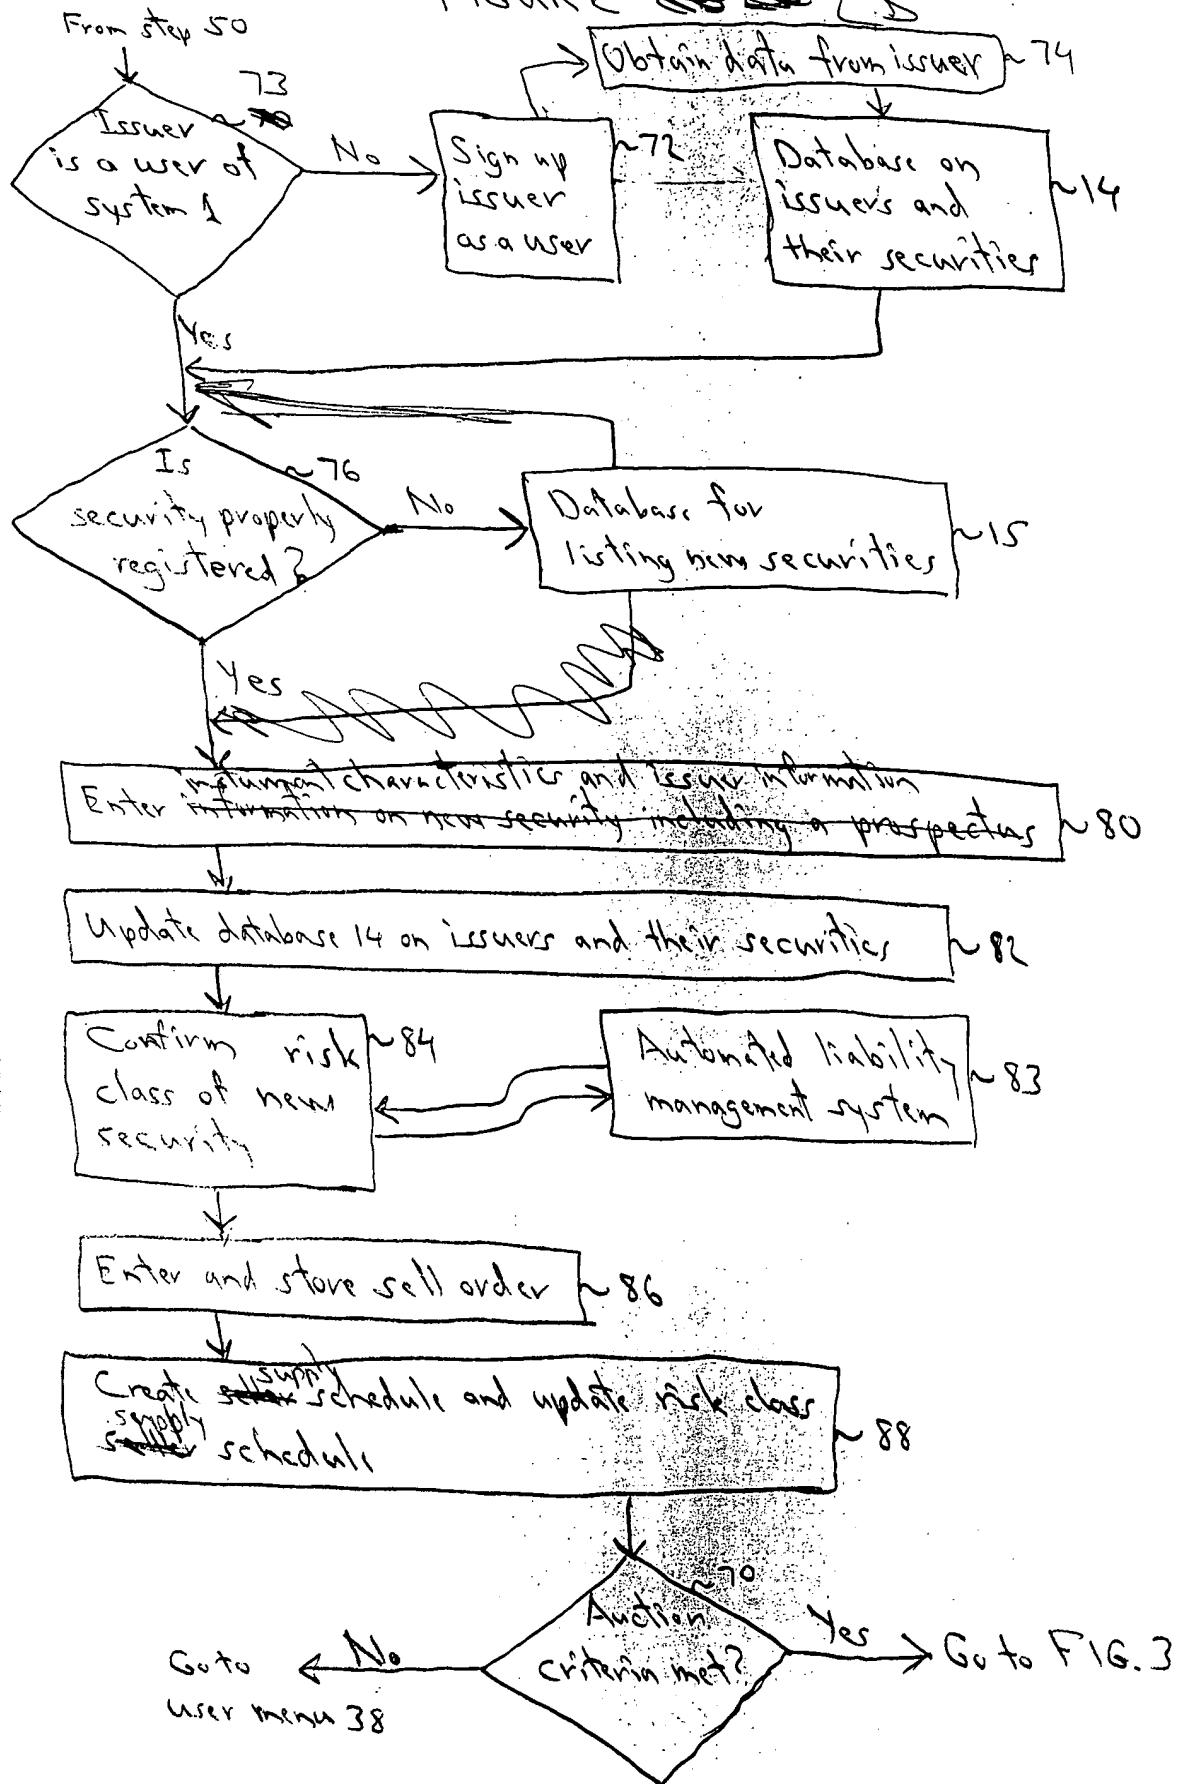 FIGURE 2B
From step 50
73
Issuer
is a user of
system 1
No
Sign up
issuer
as a user
~72
Obtain data from issuer
~74
Database on
issuers and
their securities
~14
Yes
Is
security properly
registered?
~76
No
Database for
listing new securities
~15
Yes
instrument characteristics and issuer information
Enter information on new security including a prospectus
~80
Update database 14 on issuers and their securities
~82
Confirm risk
class of new
security
~84
Automated liability
management system
~83
Enter and store sell order
~86
supply
Create seller schedule and update risk class
supply
seller schedule
~88
~70
Auction
criteria met?
No
Go to
user menu 38
Yes
Go to FIG. 3